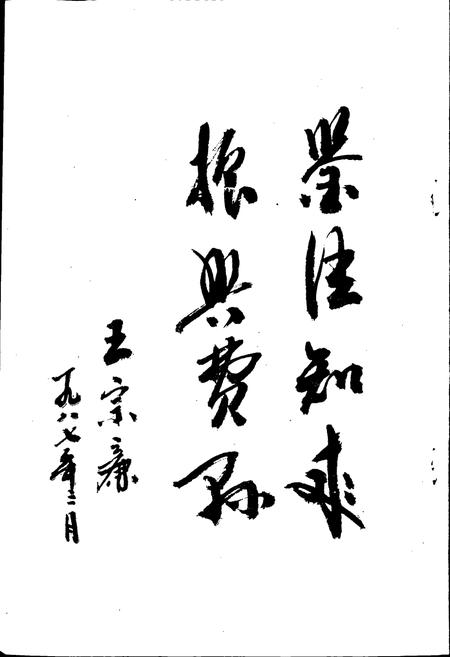 鉴往知来
振兴费县
王宗廉
一九八七年二月